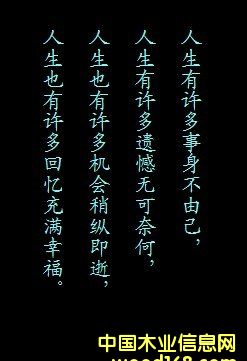 人生有许多事身不由己，
人生有许多遗憾无可奈何，
人生也有许多机会稍纵即逝，
人生也有许多回忆充满幸福。
中国木业信息网
wood168.com